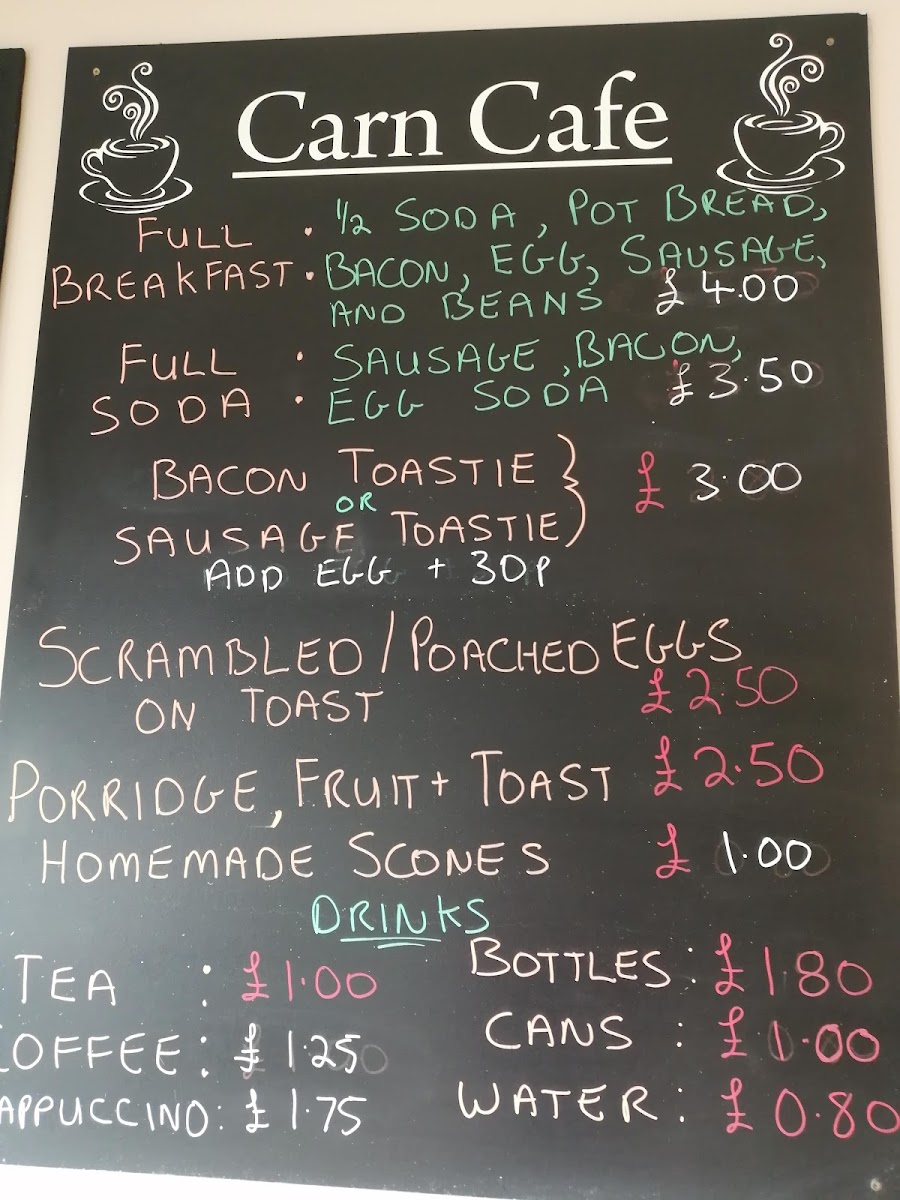 Carn Cafe
FULL BREAKFAST : 1/2 SODA, POT BREAD,
BACON, EGG, SAUSAGE,
AND BEANS £4.00
FULL SODA : SAUSAGE, BACON,
EGG SODA £3.50
BACON TOASTIE
OR
SAUSAGE TOASTIE } £3.00
ADD EGG + 30P
SCRAMBLED/POACHED EGGS
ON TOAST £2.50
PORRIDGE, FRUIT + TOAST £2.50
HOMEMADE SCONES £1.00
DRINKS
TEA : £1.00
COFFEE : £1.25
APPUCCINO: £1.75
BOTTLES: £1.80
CANS : £1.00
WATER: £0.80